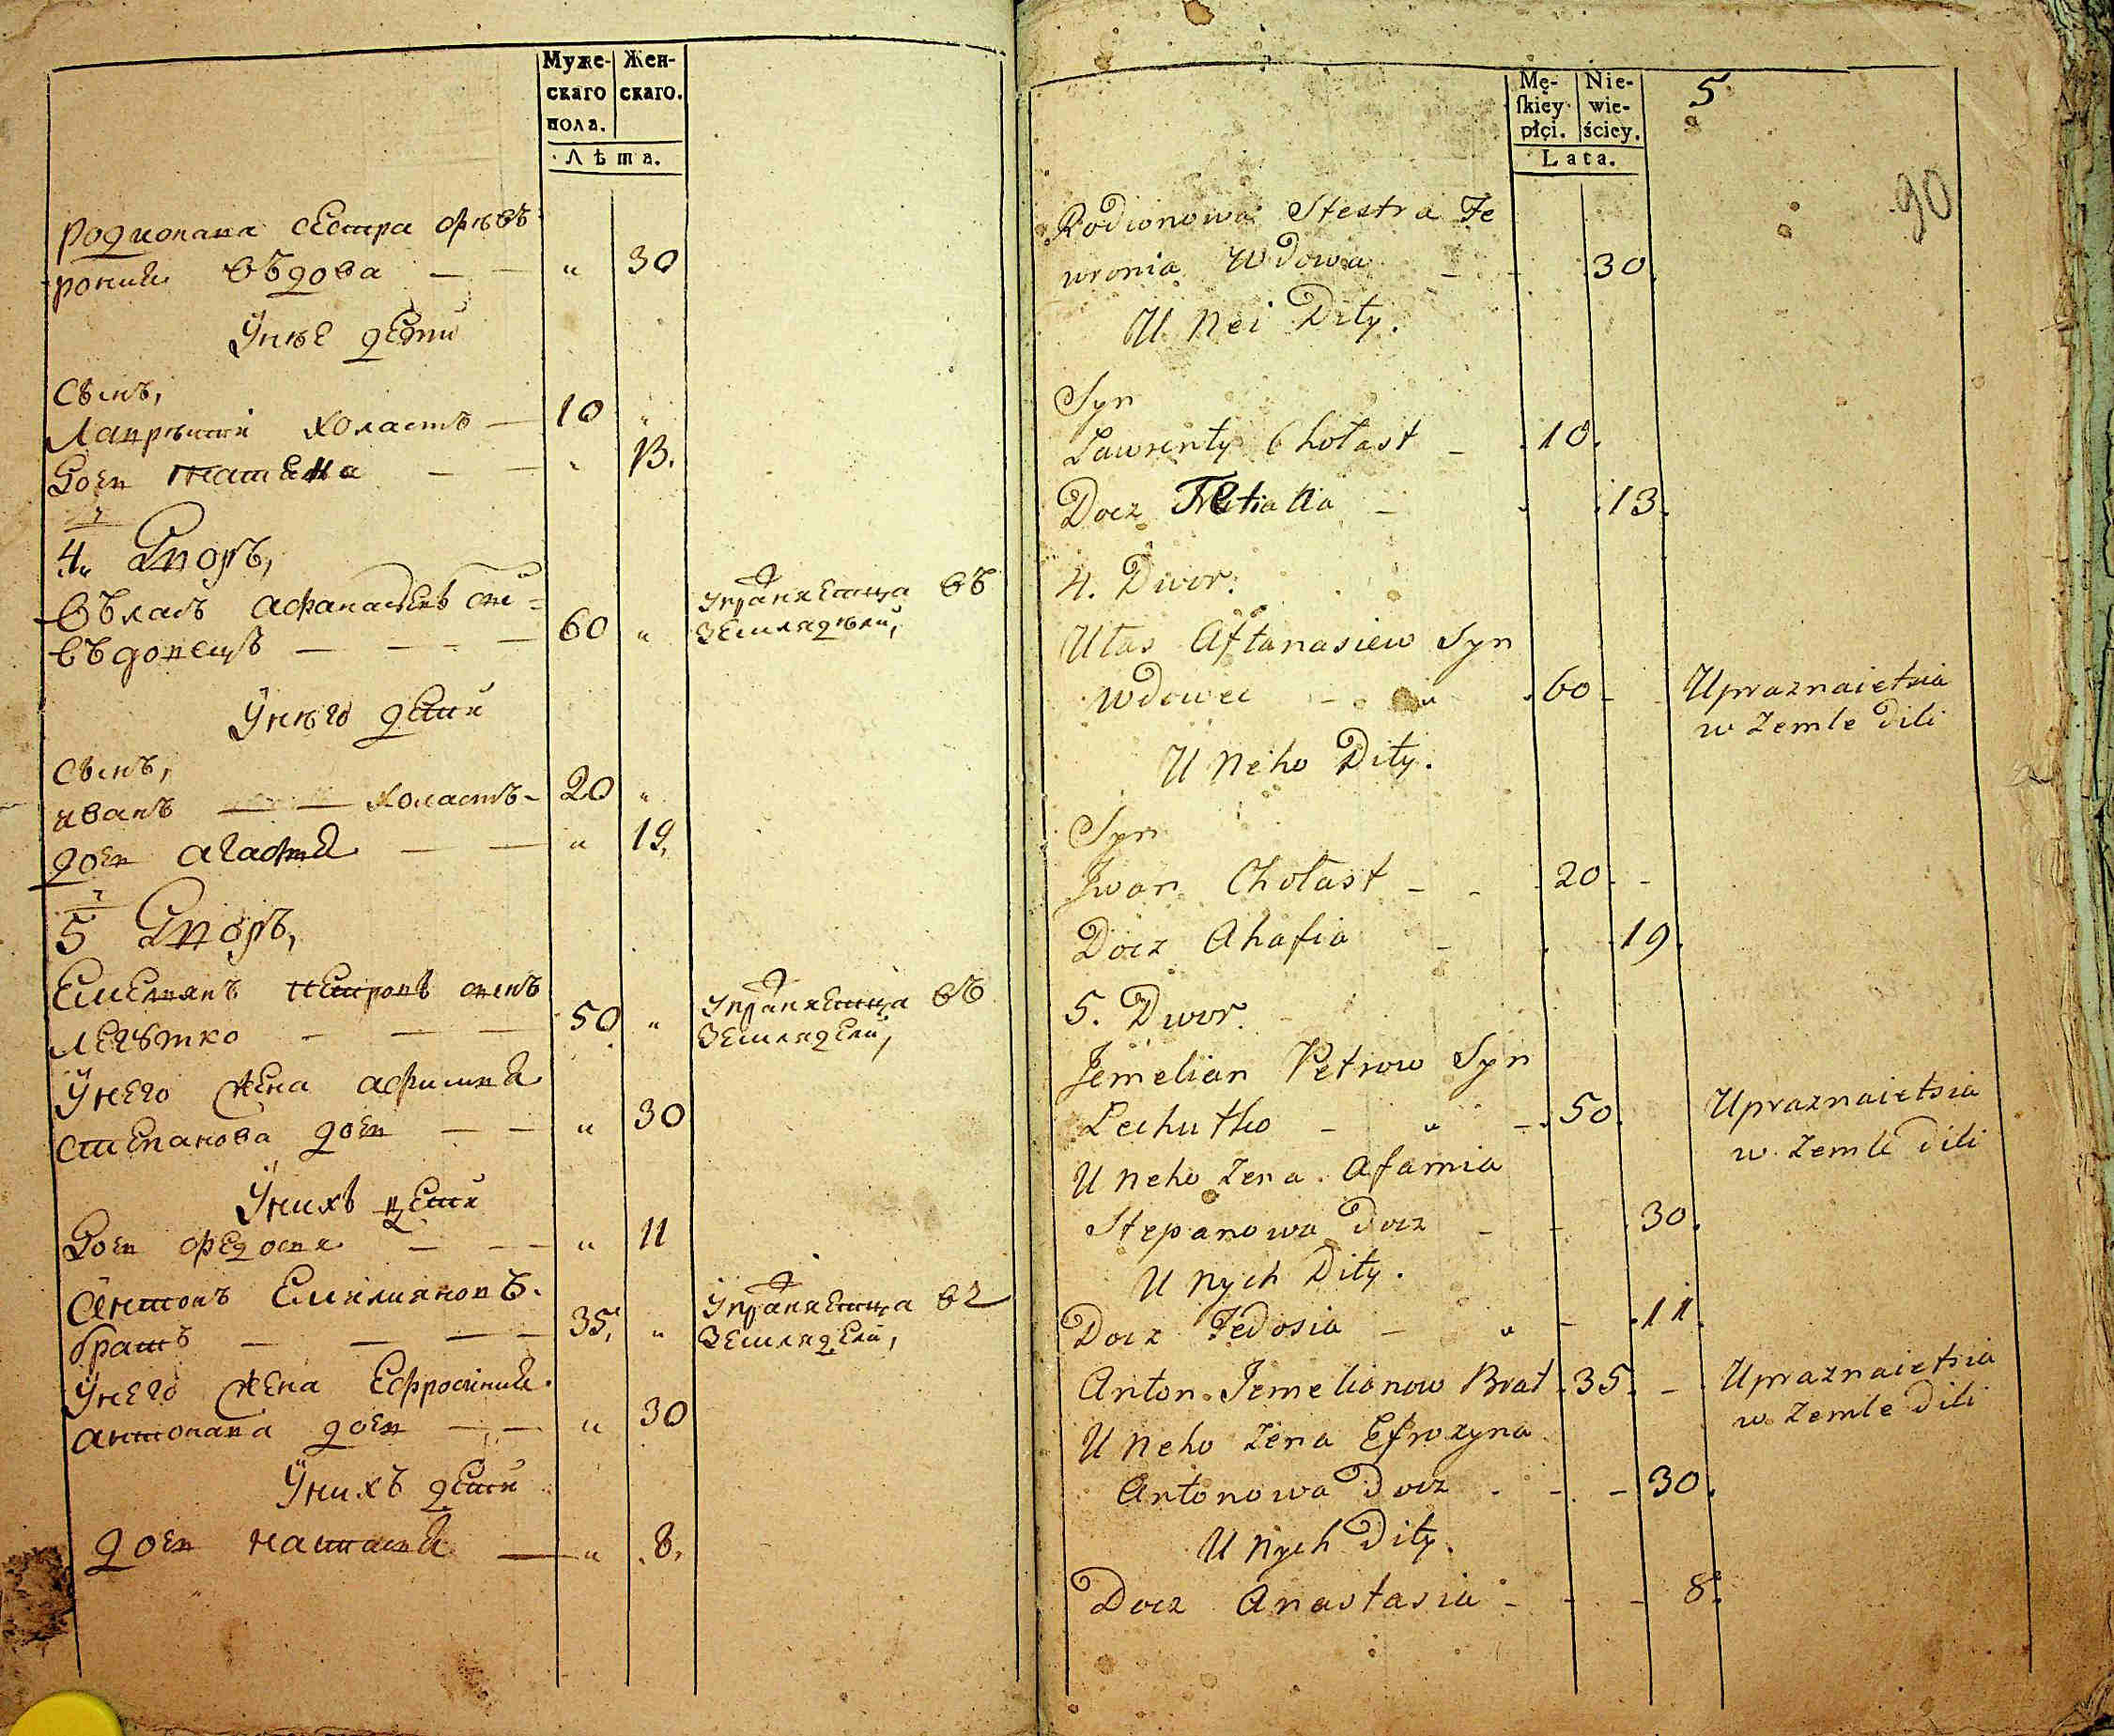 Муже-
скаго
пола.
Жен-
скаго.
Лѣта.
Родионава сестра Фѣвъ
рония въдова — — " 30
Ӱнѣе дети
Сынъ,
Лаврѣнти холастъ — 10 "
Доч Татяна — — " 13.
4. Дворъ,
Въласъ Афанасевъ сы
въдовецъ — — — — 60 "
Упражняетца въ
земляделй,
Ӱнѣго дети
Сынъ,
иванъ — — холастъ - 20 "
доч агафия — — " 19.
5 Дворъ,
Емелянъ Петровъ сынъ
легътко — — — 50 "
Упражняетца въ
земляделй,
Ӱнего жена афимия
степанова доч — — " 30
Ӱнихъ дети
Доч федосия — — " 11
Антонъ Емиляновъ.
братъ — — — 35. "
Упражняетца въ
земляделй,
Ӱнего жена Ефросиния
антонава доч — — " 30
Ӱнихъ дети
доч настасия — " 8.
Mę-
ſkiey
płçi.
Nie-
wie-
ściey.
Lata.
5
90
Rodionowa Siestra Fe
wronia Wdowa - - 30.
U Nei Dity.
Syn
Lawrenty Chołast - 10.
Docz Tatiana - 13.
4. Dwor.
Ułas Aftanasiew Syn
Wdowec - - " 60 -
Upraznaietsia
w Zemle dili
U Neho Dity.
Syn
Jwan Chołast - - 20 -
Docz Ahafia - 19.
5. Dwor.
Jemelian Petrow Syn
Lechutko - " - 50.
Upraznaietsia
w Zemle dili
U Neho Zena Afamia
Stepanowa Docz - - 30.
U Nych Dity.
Docz Fedosia - " - 11.
Anton Jemelianow Brat 35. -
Upraznaietsia
w Zemle dili
U Neho Zena Efrozyna
Antonowa Docz - - - 30.
U Nych Dity.
Docz Anastasia - - - 8.